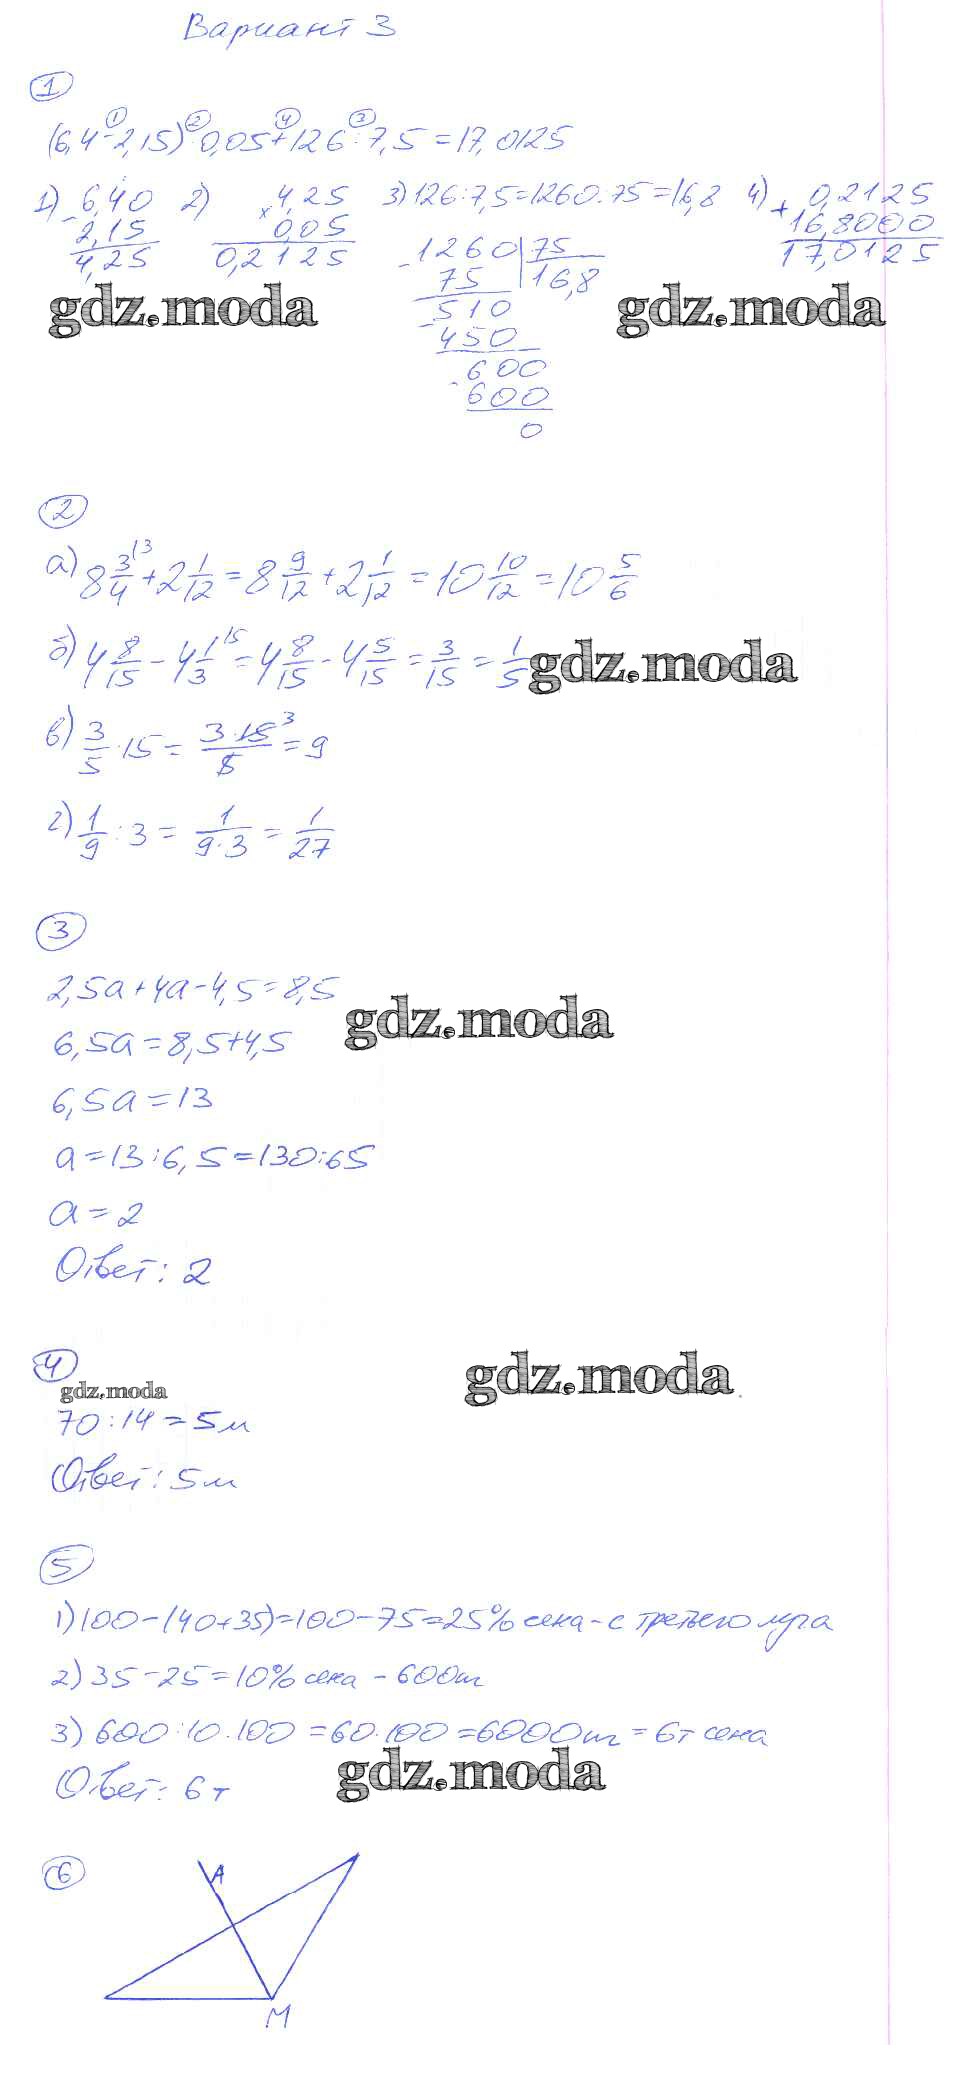 Вариант 3
1
(6,4 - 2,15) · 0,05 + 126 : 7,5 = 17,0125
1) 6,40 - 2,15 = 4,25
2) 4,25 × 0,05 = 0,2125
3) 126 : 7,5 = 1260 : 75 = 16,8
1260 | 75
75 | 16,8
510
450
600
600
0
4) 0,2125 + 16,8000 = 17,0125
gdz.moda gdz.moda
2
а) 8 3/4 + 2 1/12 = 8 9/12 + 2 1/12 = 10 10/12 = 10 5/6
б) 4 8/15 - 4 1/3 = 4 8/15 - 4 5/15 = 3/15 = 1/5
gdz.moda
в) 3/5 · 15 = 3·15/5 = 9
г) 1/9 : 3 = 1/9·3 = 1/27
3
2,5a + 4a - 4,5 = 8,5
gdz.moda
6,5a = 8,5 + 4,5
6,5a = 13
a = 13 : 6,5 = 130 : 65
a = 2
Ответ: 2
4
gdz.moda
gdz.moda
70 : 14 = 5 м
Ответ: 5 м
5
1) 100 - (40 + 35) = 100 - 75 = 25% сена - с третьего луга
2) 35 - 25 = 10% сена - 600 кг
3) 600 : 10 · 100 = 60 · 100 = 6000 кг = 6 т сена
gdz.moda
Ответ: 6 т
6
A
M